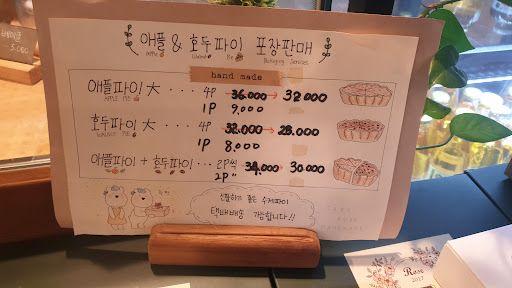 베이글
5,000
애플 & 호두파이 포장판매
APPLE Walnut Pie Packaging Services
hand made
애플파이 大 ···· 4P 36,000 → 32,000
APPLE PIE 1P 9,000
호두파이 大 ···· 4P 32,000 → 28,000
WALNUT PIE 1P 8,000
애플파이 + 호두파이 ··· 2P씩 34,000 → 30,000
2P "
선물하기 좋은 수제파이
택배배송 가능합니다!!
Rose
2017